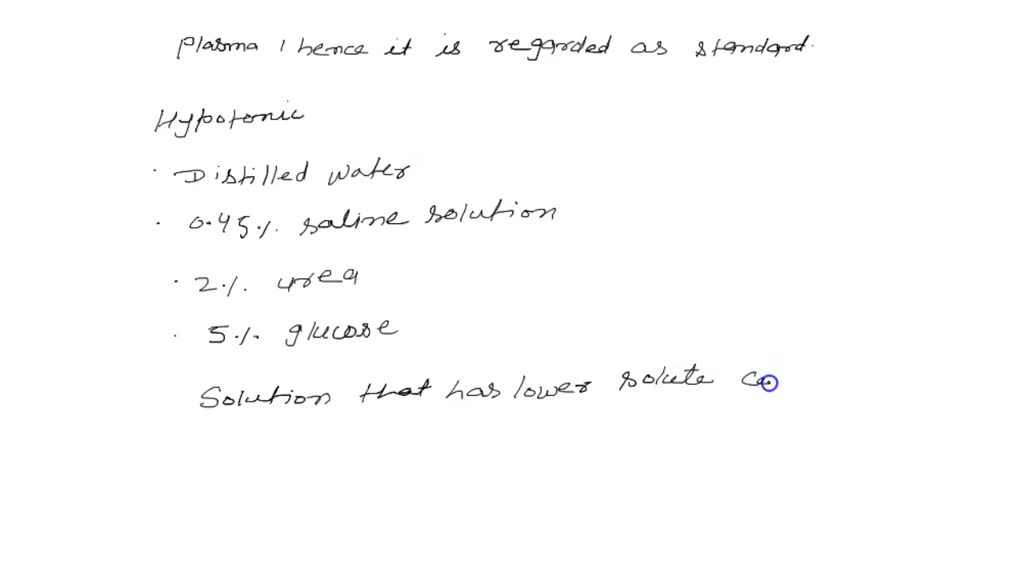 plasma, hence it is regarded as standard.
Hypotonic
· Distilled water
· 0.45% saline solution
· 2% urea
· 5% glucose
Solution that has lower solute co